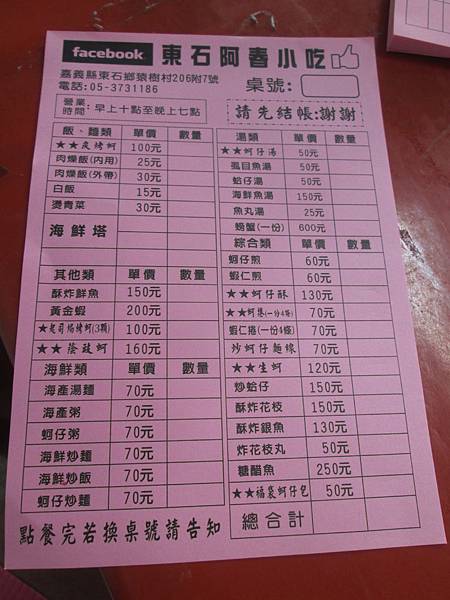 facebook 東石阿春小吃
嘉義縣東石鄉猿樹村206附7號
電話:05-3731186
桌號:
營業時間: 早上十點至晚上七點
請先結帳:謝謝
飯、麵類 單價 數量
★★炭烤蚵 100元
肉燥飯(內用) 25元
肉燥飯(外帶) 30元
白飯 15元
燙青菜 30元
海鮮塔
其他類 單價 數量
酥炸鮮魚 150元
黃金蝦 200元
★起司焗烤蚵(3顆) 100元
★★蔭豉蚵 160元
海鮮類 單價 數量
海產湯麵 70元
海產粥 70元
蚵仔粥 70元
海鮮炒麵 70元
海鮮炒飯 70元
蚵仔炒麵 70元
湯類 單價 數量
★★蚵仔湯 50元
虱目魚湯 50元
蛤仔湯 50元
海鮮魚湯 150元
魚丸湯 25元
螃蟹(一份) 600元
綜合類 單價 數量
蚵仔煎 60元
蝦仁煎 60元
★★蚵仔酥 130元
★★蚵捲(一份4條) 70元
蝦仁捲(一份4條) 70元
炒蚵仔麵線 70元
★★生蚵 120元
炒蛤仔 150元
酥炸花枝 150元
酥炸銀魚 130元
炸花枝丸 50元
糖醋魚 250元
★★福袋蚵仔包 50元
總合計
點餐完若換桌號請告知